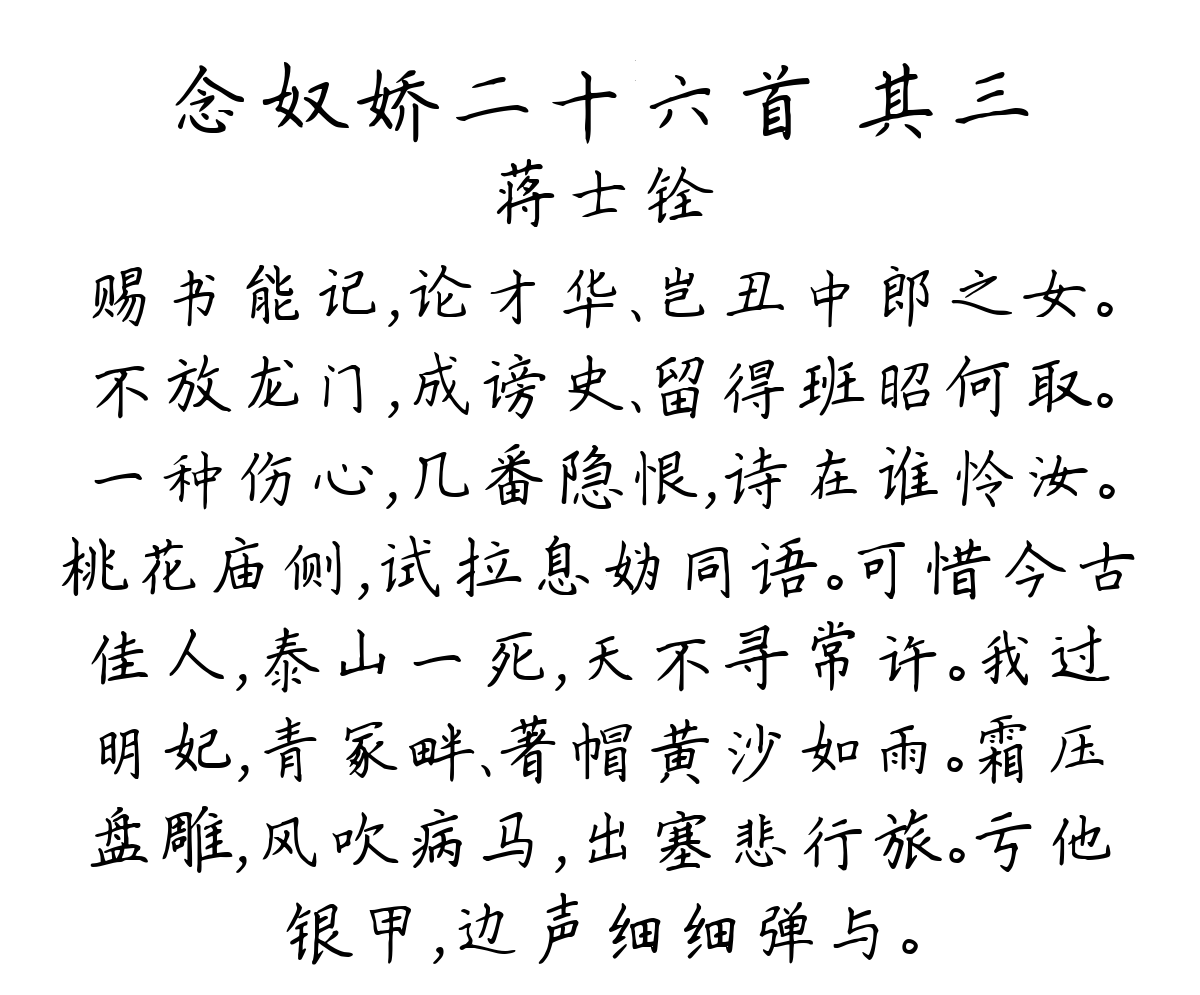 念奴娇二十六首 其三
蒋士铨
赐书能记,论才华、岂丑中郎之女。
不放龙门,成谤史、留得班昭何取。
一种伤心,几番隐恨,诗在谁怜汝。
桃花庙侧,试拉息妫同语。可惜今古
佳人,泰山一死,天不寻常许。我过
明妃,青冢畔、著帽黄沙如雨。霜压
盘雕,风吹病马,出塞悲行旅。亏他
银甲,边声细细弹与。